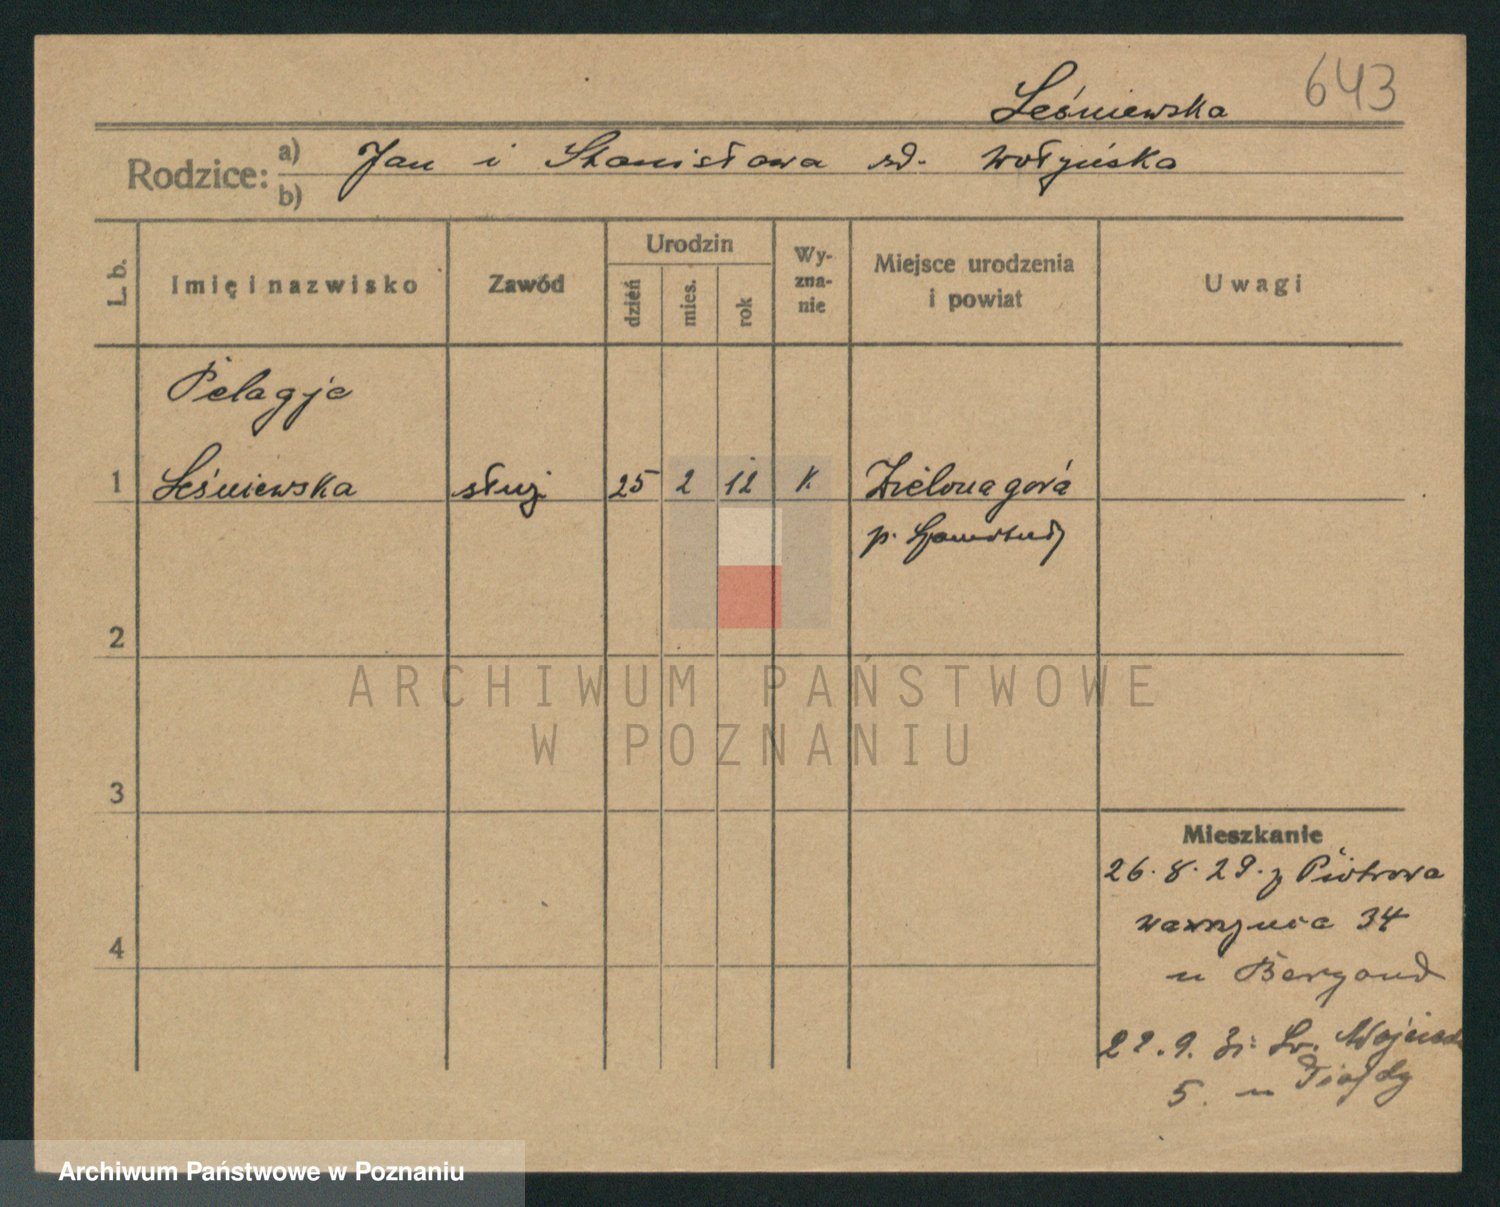 643
Leśniewska
Rodzice: a) Jan i Stanisława zd. Wołyńska
b)
L. b. Imię i nazwisko Zawód Urodzin dzień mies. rok Wyznanie Miejsce urodzenia i powiat Uwagi
Pelagja
1 Leśniewska służ. 25 2 12 k. Zielonagóra
p. Szamotuły
2
3
4
Mieszkanie
26.8.29. z Piotrowa
wawrzynca 34
u
22.9. Św. Wojciech
5. u
ARCHIWUM PAŃSTWOWE
W POZNANIU
Archiwum Państwowe w Poznaniu